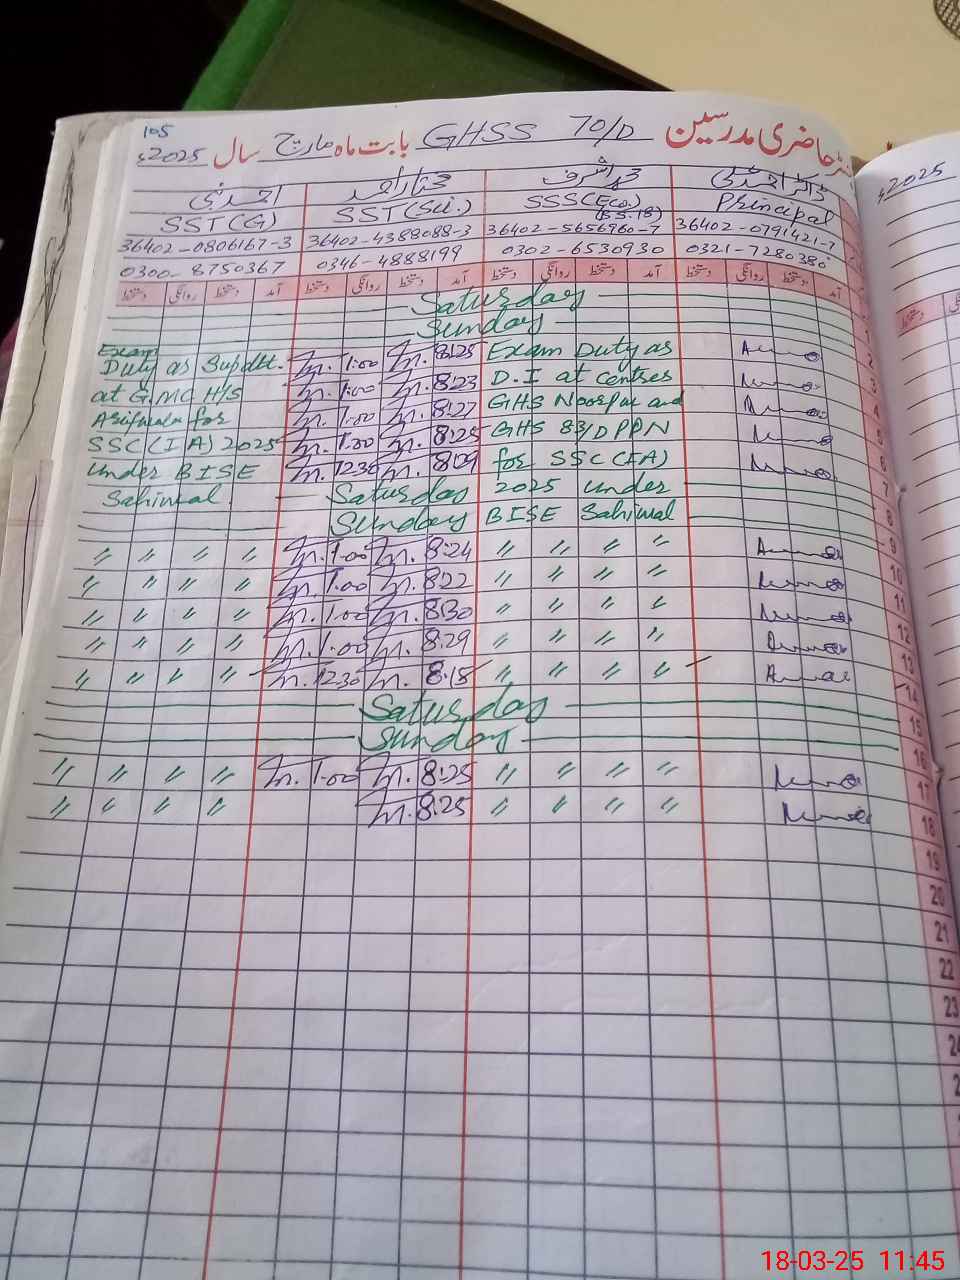 105
رجسٹر حاضری مدرسین GHSS 70/D بابت ماہ مارچ سال 2025ء
2025ء
ڈاکٹر احمد علی محمد اشرف مختار احمد احمد نبی
Principal SSS(Eco.) SST(Sci.) SST(G)
(BS.18)
36402-0791421-7 36402-5656960-7 36402-4388088-3 36402-0806167-3
0321-7280380 0302-6530930 0346-4888199 0300-8750367
آمد دستخط روانگی دستخط آمد دستخط روانگی دستخط آمد دستخط روانگی دستخط آمد دستخط روانگی دستخط
Saturday 1
Sunday 2
Exam
Duty as Supdtt. 1:00 8:25 Exam Duty as 3
at G.MC H/S 1:00 8:23 D.I at centres 4
Arifwala for 1:00 8:27 GHS Noorpur and 5
SSC(IA) 2025 1:00 8:25 GHS 83/D PPN 6
Under BISE 12:30 8:09 for SSC(IA) 7
Sahiwal. Saturday 2025 under 8
Sunday BISE Sahiwal 9
〃 〃 〃 〃 1:00 8:24 〃 〃 〃 〃 10
〃 〃 〃 〃 1:00 8:22 〃 〃 〃 〃 11
〃 〃 〃 〃 1:00 8:30 〃 〃 〃 〃 12
〃 〃 〃 〃 1:00 8:29 〃 〃 〃 〃 13
〃 〃 〃 〃 12:30 8:15 〃 〃 〃 〃 14
Saturday 15
Sunday 16
〃 〃 〃 〃 1:00 8:25 〃 〃 〃 〃 17
〃 〃 〃 〃 8:25 〃 〃 〃 〃 18
19
20
21
22
23
18-03-25 11:45